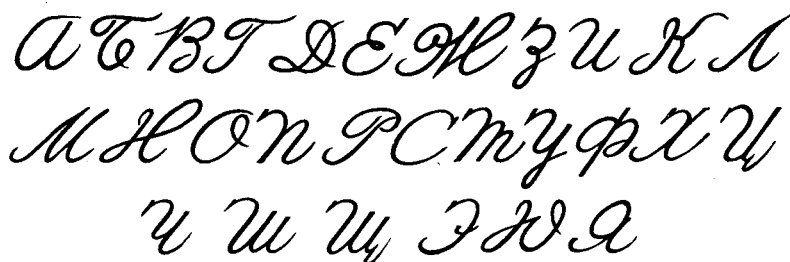 А Б В Г Д Е Ж З И К Л
М Н О П Р С Т У Ф Х Ц
Ч Ш Щ Э Ю Я